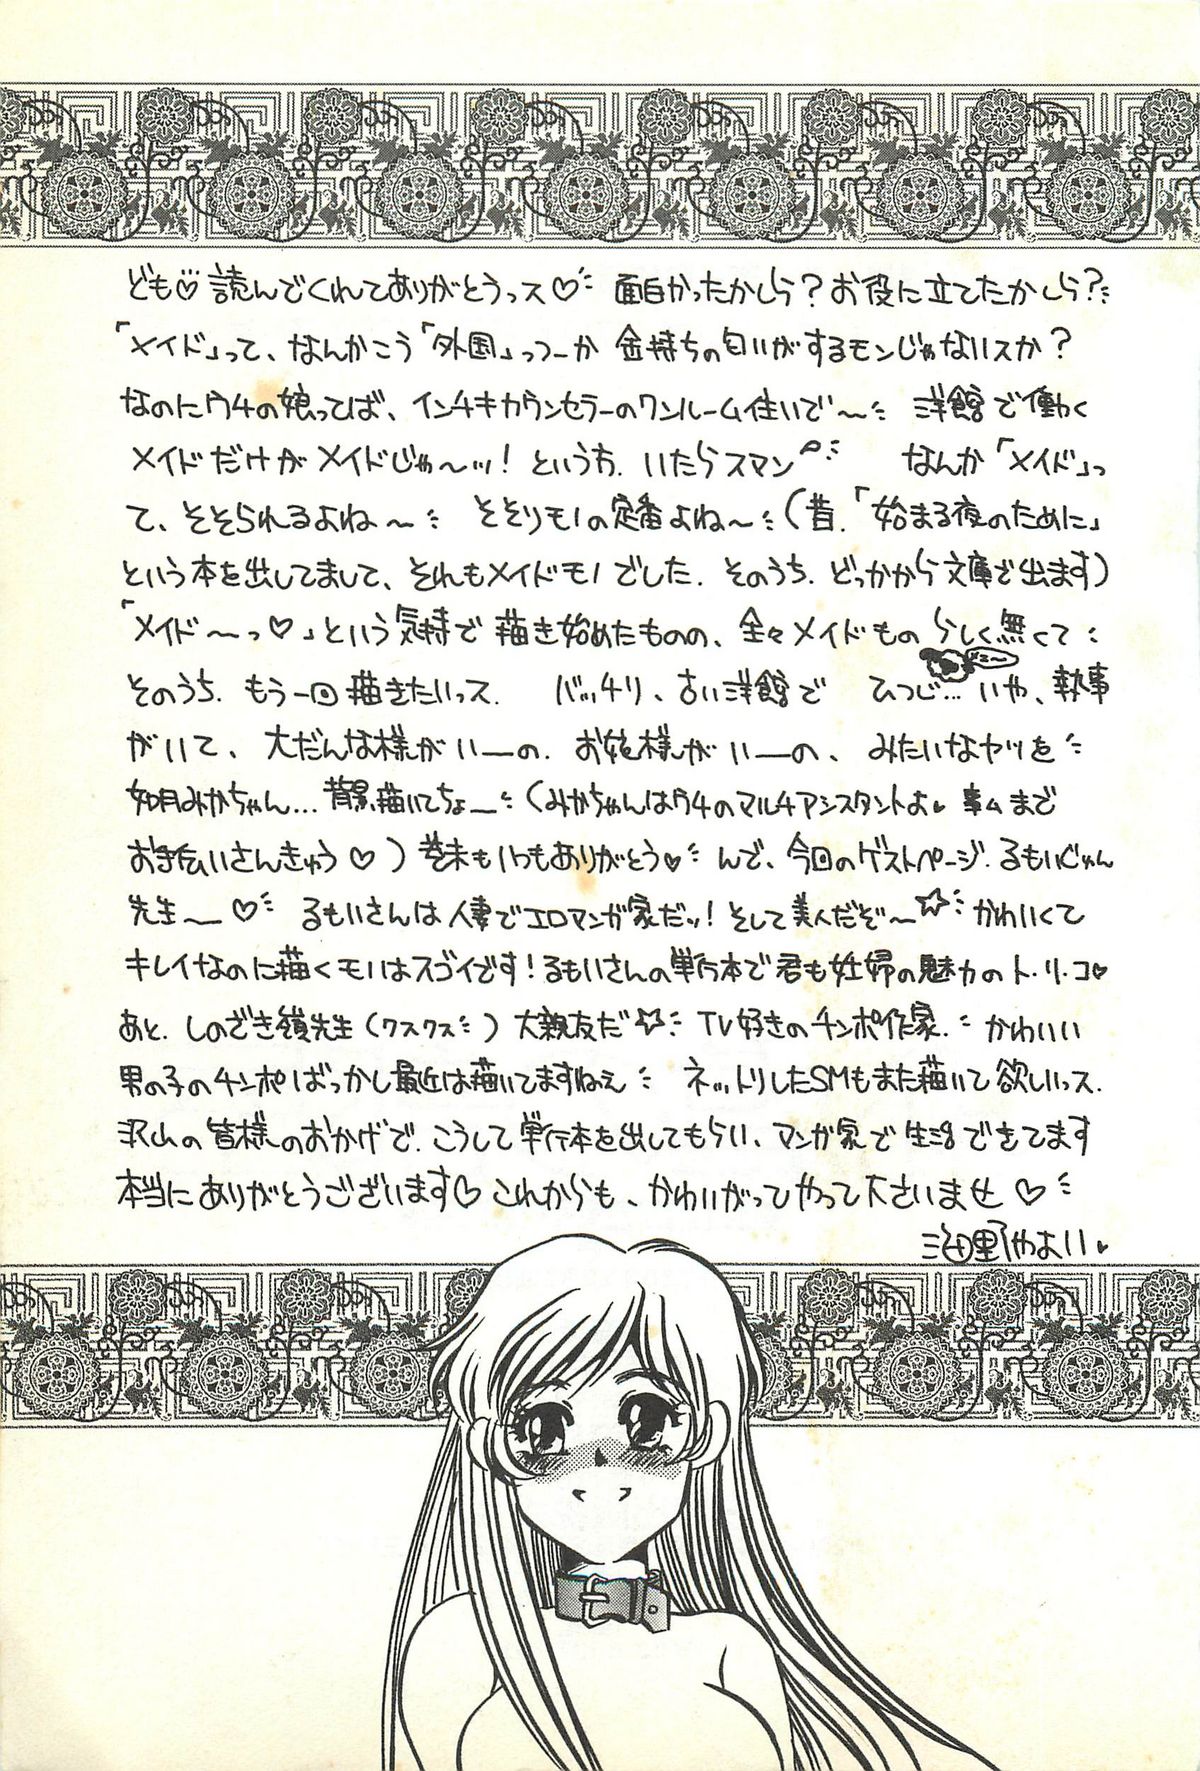 ども♡読んでくれてありがとうっス♡ 面白かったかしら？お役に立てたかしら？
「メイド」って、なんかこう「外国」っつーか 金持ちの匂いがするモンじゃないスか？
なのにウチの娘ってば、インチキカウンセラーのワンルーム住いで〜 洋館で働く
メイドだけがメイドじゃ〜ッ！というち.いたらスマン なんか「メイド」っ
て、そそられるよね〜 そそりモノの定番よね〜(昔.「始まる夜のために」
という本を出してまして、それもメイドモノでした.そのうち.どっかから文庫で出ます)
「メイド〜っ♡」という気持で描き始めたものの、全々メイドものらしく無くて
そのうち.もう一回描きたいっス. バッチリ、古い洋館で ひつじ…いや、執事
メェ〜
がいて、大だんな様がいーの.お嬢様がいーの、みたいなヤツを
如月みかちゃん…背景描いてちょー(みかちゃんはウチのマルチアシスタントよ♥事ムまで
お手伝いさんきゅう♡)巻末もいつもありがとう♥んで、今回のゲストページ.るもいじゅん
先生〜♡ るもいさんは人妻でエロマンガ家だッ！そして美人だぞ〜☆かわいくて
キレイなのに描くモノはスゴイです！るもいさんの単行本で君も妊婦の魅力のト・リ・コ♥
あと.しのざき嶺先生(クスクス)大親友だ☆ TV好きのチンポ作家. かわいい
男の子のチンポばっかし最近は描いてますねえ ネットリしたSMもまた描いて欲しいっス.
沢山の皆様のおかげで.こうして単行本を出してもらい、マンガ家で生活できてます
本当にありがとうございます♡これからも、かわいがってやって下さいませ♡
海野やよい♥